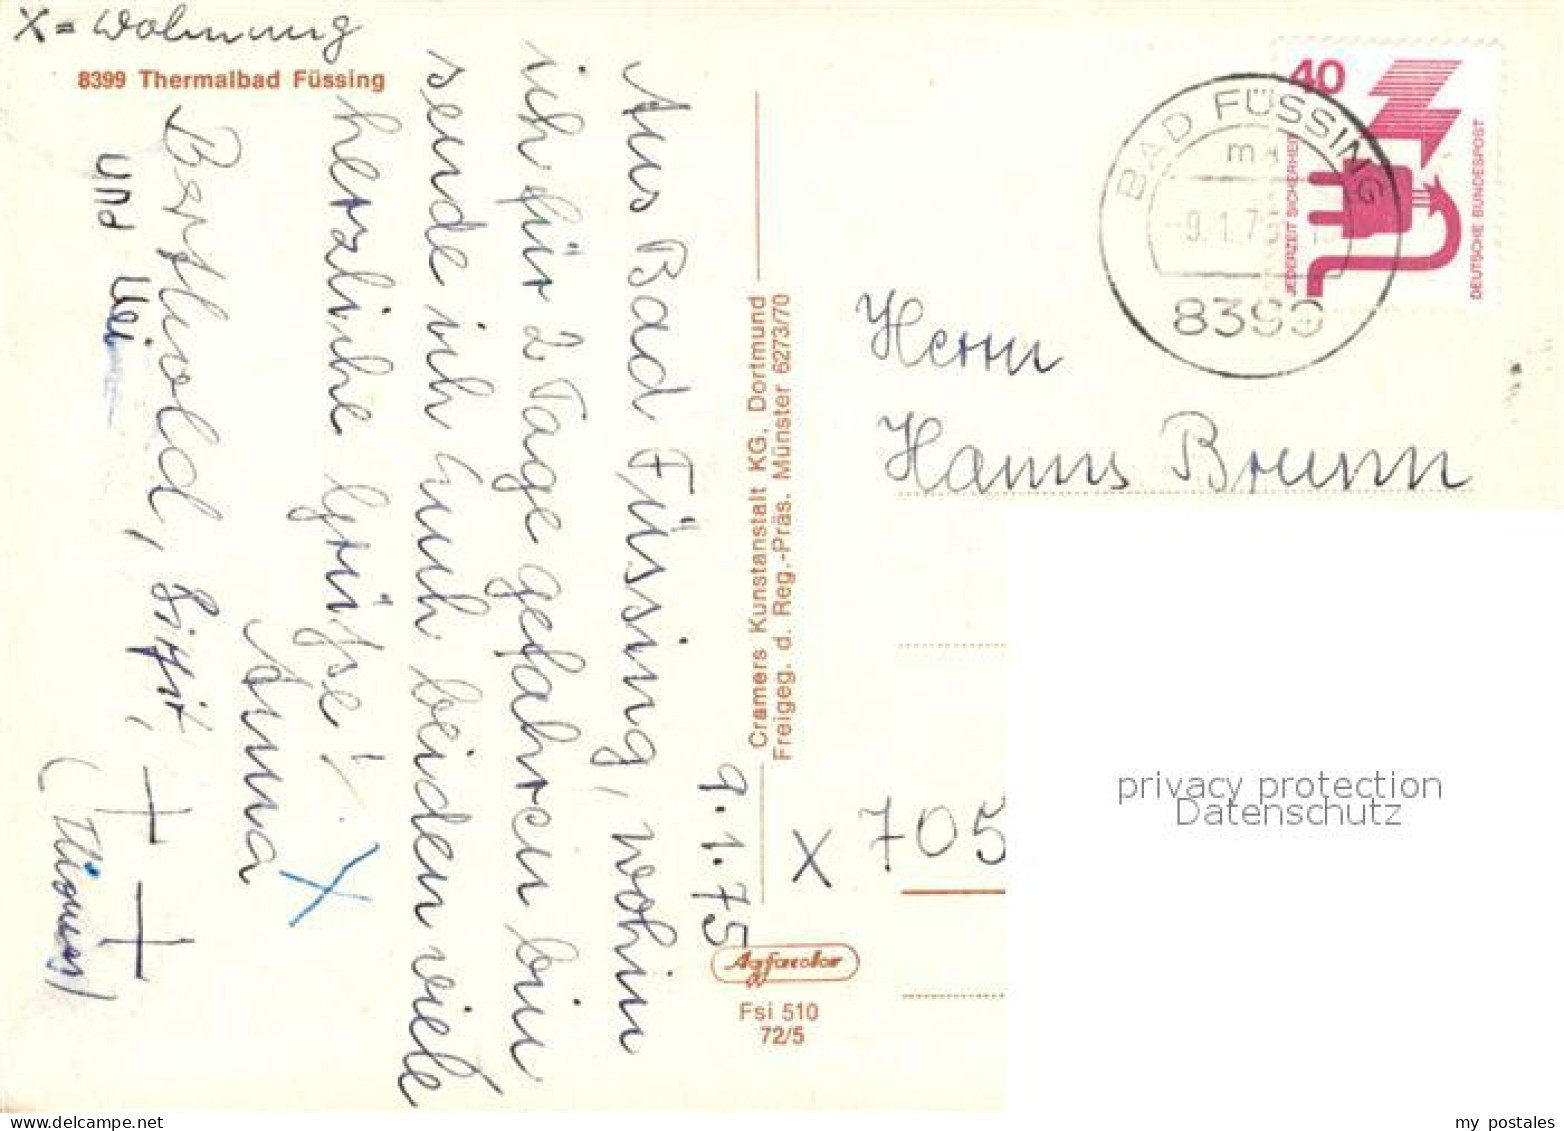 X = Wohnung
8399 Thermalbad Füssing
9.1.75
Aus Bad Füssing, wohin
ich für 2 Tage gefahren bin
sende ich Euch beiden viele
herzliche Grüße!
Anna
X
Berthold,
und
Cramers Kunstanstalt KG, Dortmund
Freigeg. d. Reg.-Präs. Münster 6273/70
Agfacolor
Fsi 510
72/5
40
JEDERZEIT SICHERHEIT
DEUTSCHE BUNDESPOST
BAD FÜSSING
-9.1.75
8399
Herrn
Hanns Brunn
X 705
privacy protection
Datenschutz
my postales